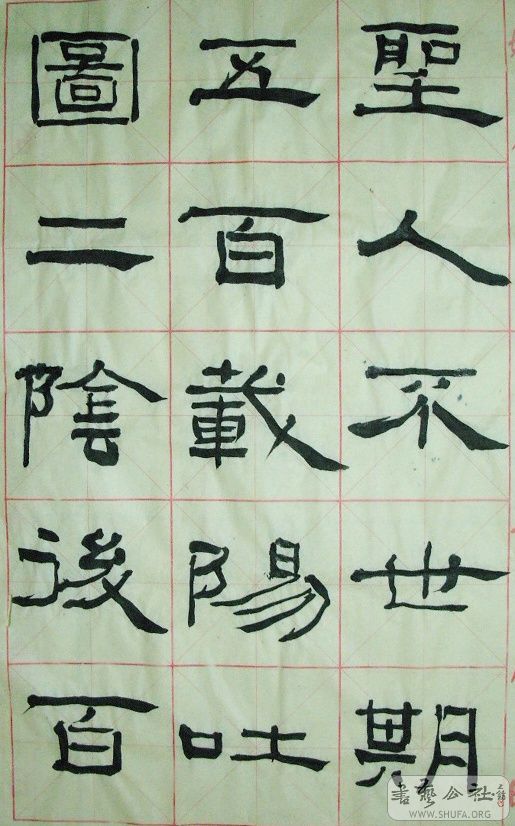 聖人不世期
五百載陽吐
圖二陰後百
書藝公社
WWW.SHUFA.ORG